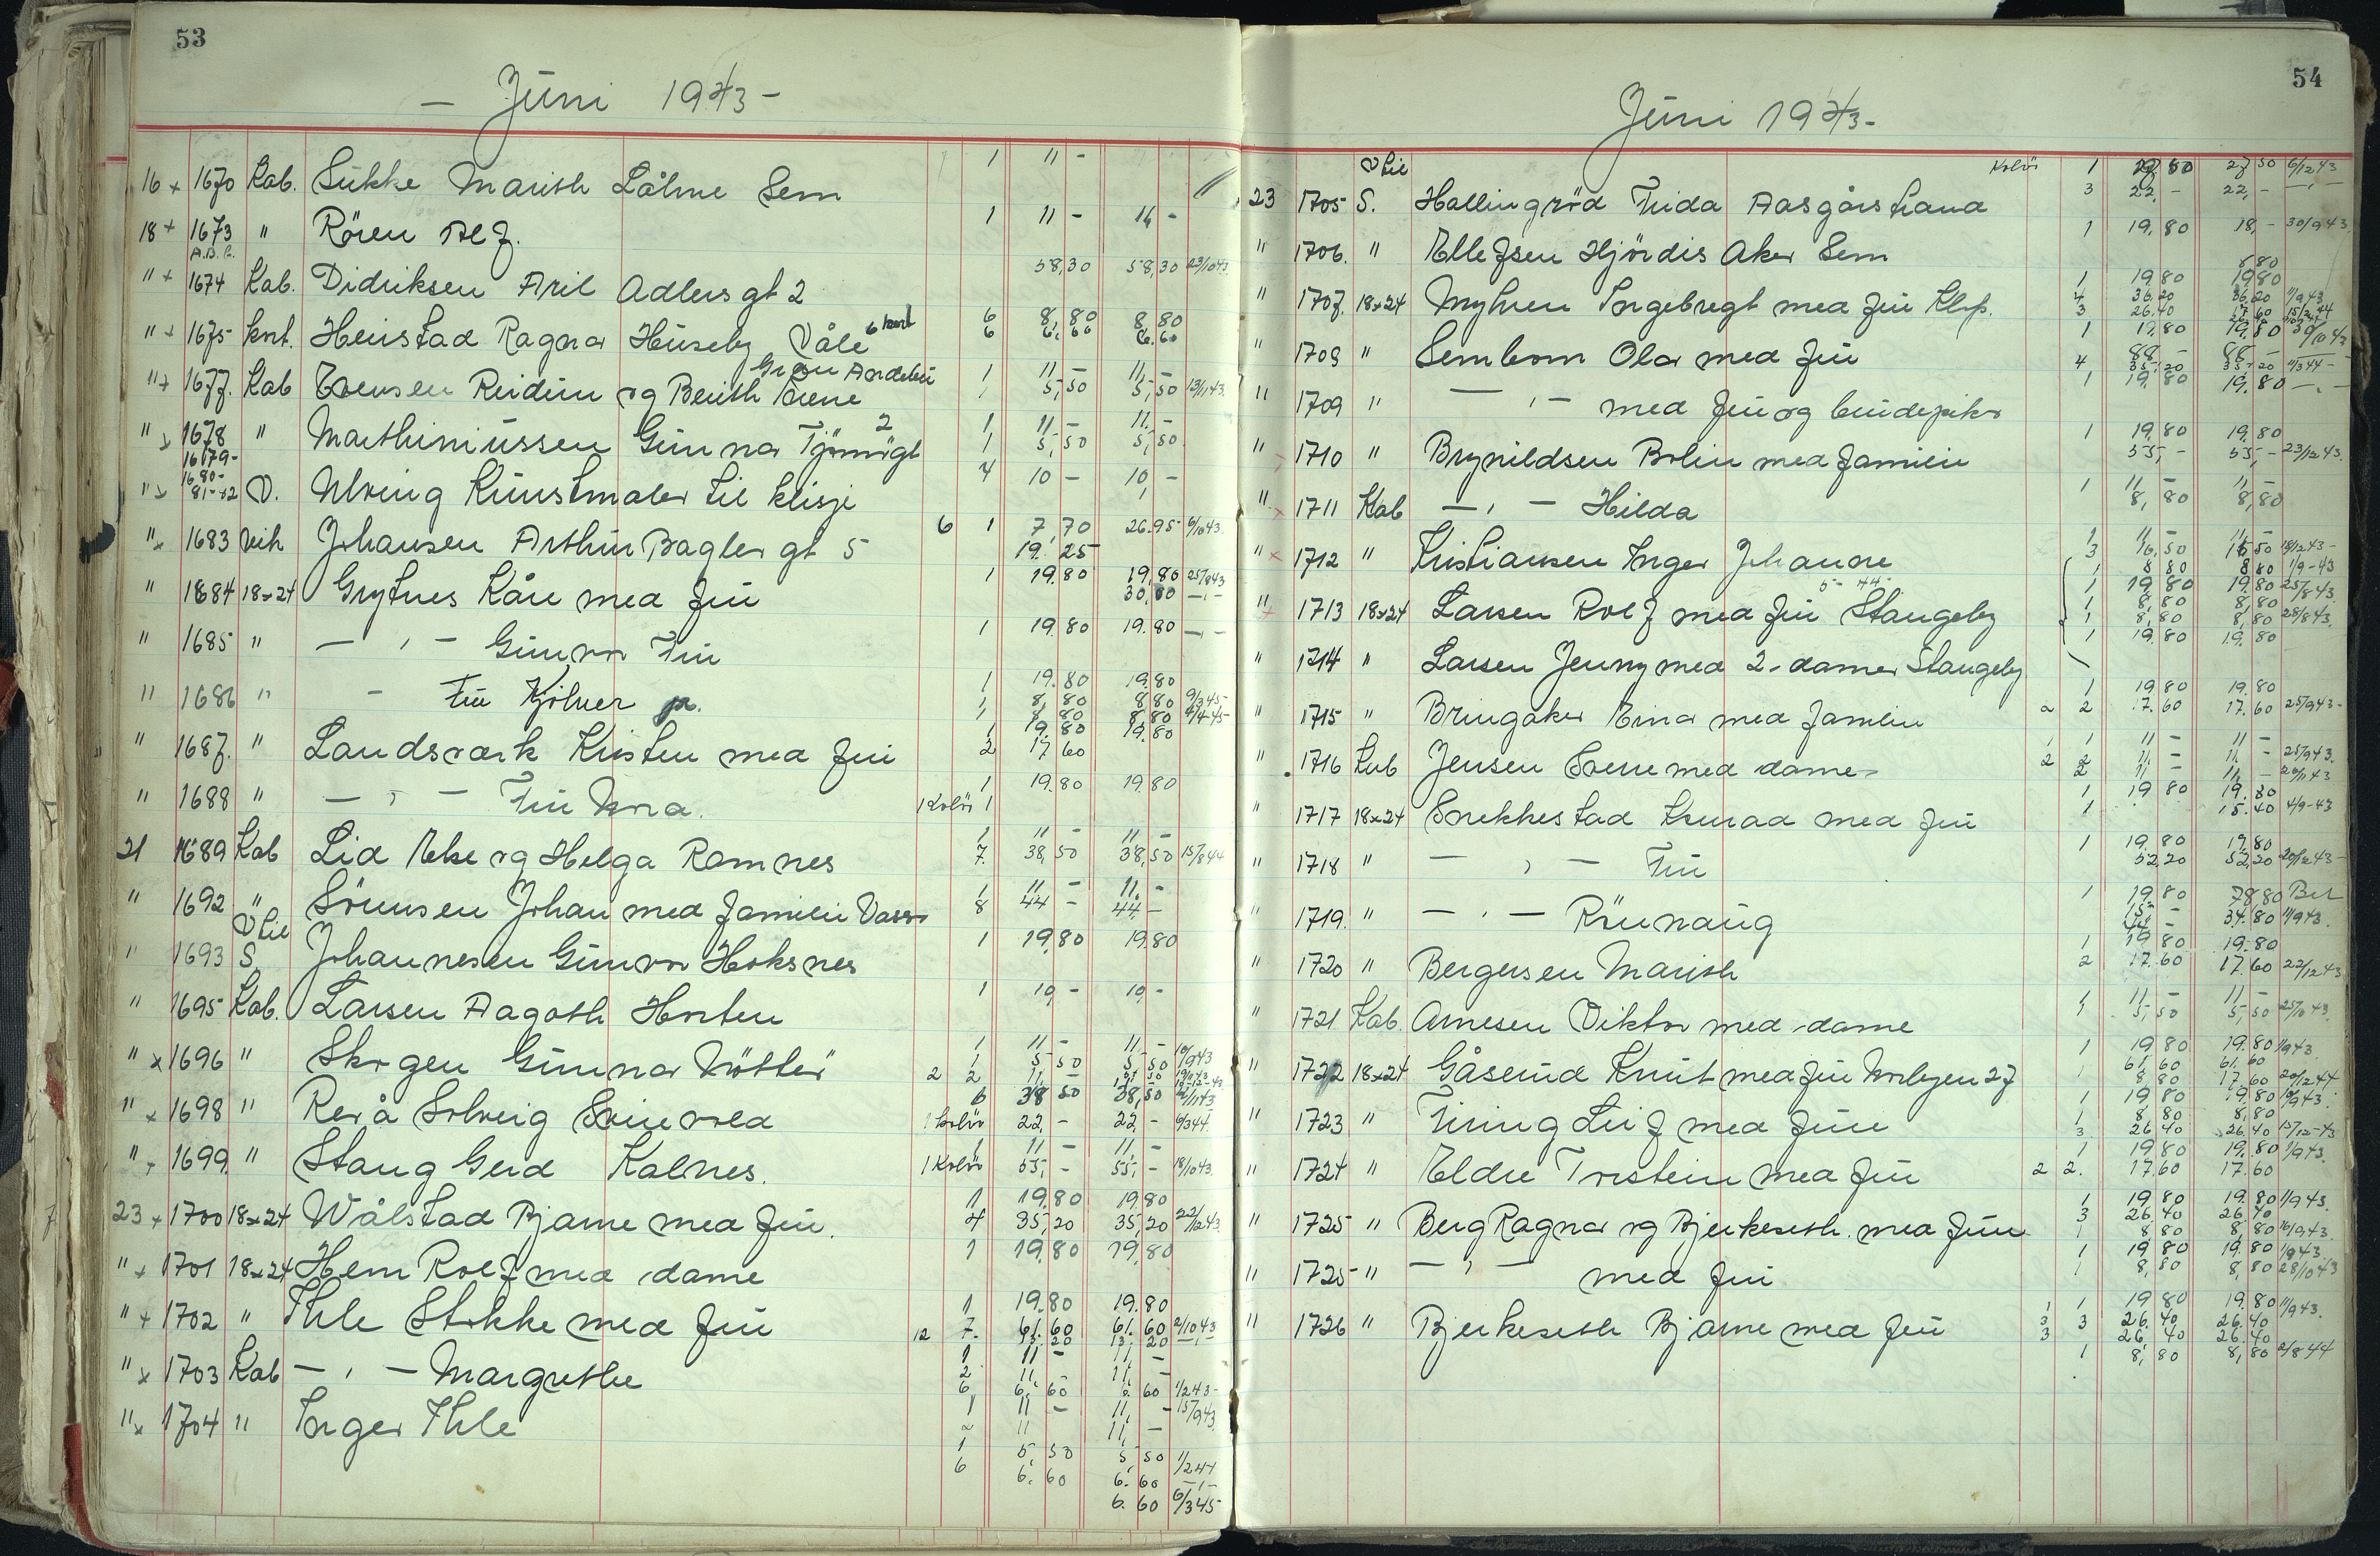 53
- Juni 1943 -
16 x 1670 Kab. Sukke Marith Låhne Sem 1 11 -
18 + 1673 " Rören Alf. 1 11 - 11 -
A.B.C.
" + 1674 Kab. Didriksen Aril Adlersgt 2 58,30 58,30 23/10 43
" + 1675 knt. Heistad Ragnar Huseby Våle 6 kort 6 8,80 8,80
6 6,60 6.60
Gran Andebu
" + 1677. Kab Evensen Reidun og Berith Irene 1 11 - 11, -
5,50 5,50 13/11 43.
" x 1678 " Marthiniussen Gunnar Tjömegt 2 1 11 - 11, -
1 5,50 5,50
1679-
1680-
" x 81-82 V. Ulving Kunstmaler til klisje 4 10 - 10, -
" x 1683 vik Johansen Arthur Bagler gt 5 6 1 7,70 26.95 6/10 43.
19.25
" 1684 18x24 Grytnes Kåre med fru 1 19.80 19,80 25/8 43
30,80 - , -
" 1685 " - , - Gunvor Fru 1 19.80 19.80 - , -
" 1686 " - Fru Kjölner pr. 1 19.80 19.80
1 8,80 8,80 9/3 45-
1 8,80 8,80 9/4-45-
" 1687. " Landsværk Kristen med fru 1 19,80 19.80
2 17,60
" 1688 " - , - Fru Nora. 1 Kolör 1 19.80 19,80
21 1689 Kab Lid Else og Helga Ramnes 1 11 - 11 -
7. 38,50 38,50 15/8 44
" 1692 " Sörensen Johan med familie Vasser 1 11 - 11. -
8 44 - 44 -
V til
" 1693 S. Johannesen Gunvor Hoksnes 1 19.80 19.80
" 1695 Kab. Larsen Aagoth Horten 1 10, - 10, -
" x 1696 " Skogen Gunnar Nötteröÿ 1 11 - 11, -
1 5,50 5,50
2 2 11 -
" x 1698 " Rerå Solveig Svinevold 6 38 50 38,50
1 kolör 22, - 22, - 6/3 44.
" + 1699. " Stang Gerd Kalnes. 1 11 - 11, -
1 Kolör 55, - 55, - 18/10 43.
23 + 1700 18x24 Wålstad Bjarne med fru. 1 19.80 19.80
4 35,20 35,20 22/12 43.
" + 1701 18x24 Hem Rolf med dame 1 19,80 19,80
" + 1702 " Ihle Stokke med fru 1 19.80 19.80
12 7. 61.60 61.60 2/10 43
13.20 13.20 - , -
" x 1703 Kab - , - Margrethe 1 11 - 11, -
2 11, - 11, -
6, 6,60 6.60 1/2 43-
" x 1704 " Inger Ihle 1 11 - 11, - 15/9 43
2 11 11, -
1 5,50 5,50 1/2 44
6 6.60 6.60 - , -
6.60 6/3 45-
54
Juni 1943 -
V til Kolör 1 27,50 27 50 6/12 43
23 1705 S. Hallingröd Frida Aasgårstrand 3 22, - 22, - - , -
" 1706. " Ellefsen Hjördis Aker Sem 1 19,80 18, - 30/9 43.
8 80
" 1707 18x24 Myhren Ingebregt med fru Klop. 1 19.80 19.80
4 36.20 36.20 11/9 43
3 26.40 17.60 15/2 44
" 1708 " Sembom Olav med fru 1 19.80 19,80
88 - 88 -
4 35,20 35,20 11/3 44 -
" 1709 " - , - med fru og brudepiker 1 19.80 19.80 - . -
" 1710 " Brynildsen Bolin med familie 1 19.80 19.80
55, - 55, - 23/12 43.
" 1711 Kab - , - Hilda 1 11 - 11, -
8,80 8,80
" x 1712 " Kristiansen Inger Johanne 1 11 - 11 -
3 16,50 16 50 18/12 43-
1 8 80 8 80 1/9-43
5- 44-
" 1713 18x24 Larsen Rolf med fru Stangeby 1 19.80 19.80 25/8 43.
1 8,80 8,80
1 8,80 8,80 28/8 43.
" 1714 " Larsen Jenny med 2-damer Stangeby 1 19.80 19.80
" 1715 " Bringaker Einar med familie 1 19.80 19.80
2 2 17.60 17.60 25/9 43-
" 1716 Kab Jensen Sverre med dame- 1 1 11 - 11 -
2 2 11, - 11, - 25/9 43.
2 11 - 11, - 20/11 43
" 1717 18x24 Snekkestad Konrad med fru 1 19 80 19.80
1 15.40 4/9-43
" 1718 " - , - Fru 1 19.80 19.80
52,20 52,20 20/12 43-
" 1719. " - , - Rönnaug 1 19.80 78,80 Bet
34.80 11/9 43.
" 1720 " Bergersen Marith 1 19 80 19.80
2 17.60 17.60 22/12 43
" 1721 Kab. Arnesen Viktor med dame 1 11 - 11 -
5,50 5,50 25/10 43.
" 1722 18x24 Gåserud Knut med fru Norbyen 27 1 19.80 19.80 1/9 43.
61.60 61.60
8 80 17.60 20/12 44
" 1723 " Firing Leif med frue 1 19 80 19.80
1 8.80 8,80
3 26.40 26.40 15/12-43
" 1724 " Eldre Torstein med fru 1 19.80 19.80 1/9 43.
2 2. 17.60 17.60
" 1725 " Berg Ragnar og Bjerkeseth. med frue 1 19.80 19.80 11/9 43.
3 26.40 26.40
1 8,80 8,80 16/9 43.
" 1725 " - , - med fru 1 19.80 19.80 1/9 43.
1 8,80 8,80 28/10 43
" 1726 " Bjerkeseth Bjarne med fru 1 1 19.80 19.80 11/9 43.
3 3 26.40 26.40
3 26.40 26.40
1 8,80 8,80 2/8 44